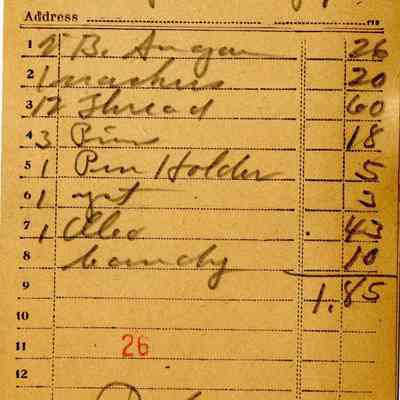 Address
1 2 B. Sugar 26
2 1 20
3 12 Thread 60
4 3 Pins 18
5 1 Pen Holder 5
6 1 3
7 1 43
8 Candy 10
9 1.85
10
11 26
12